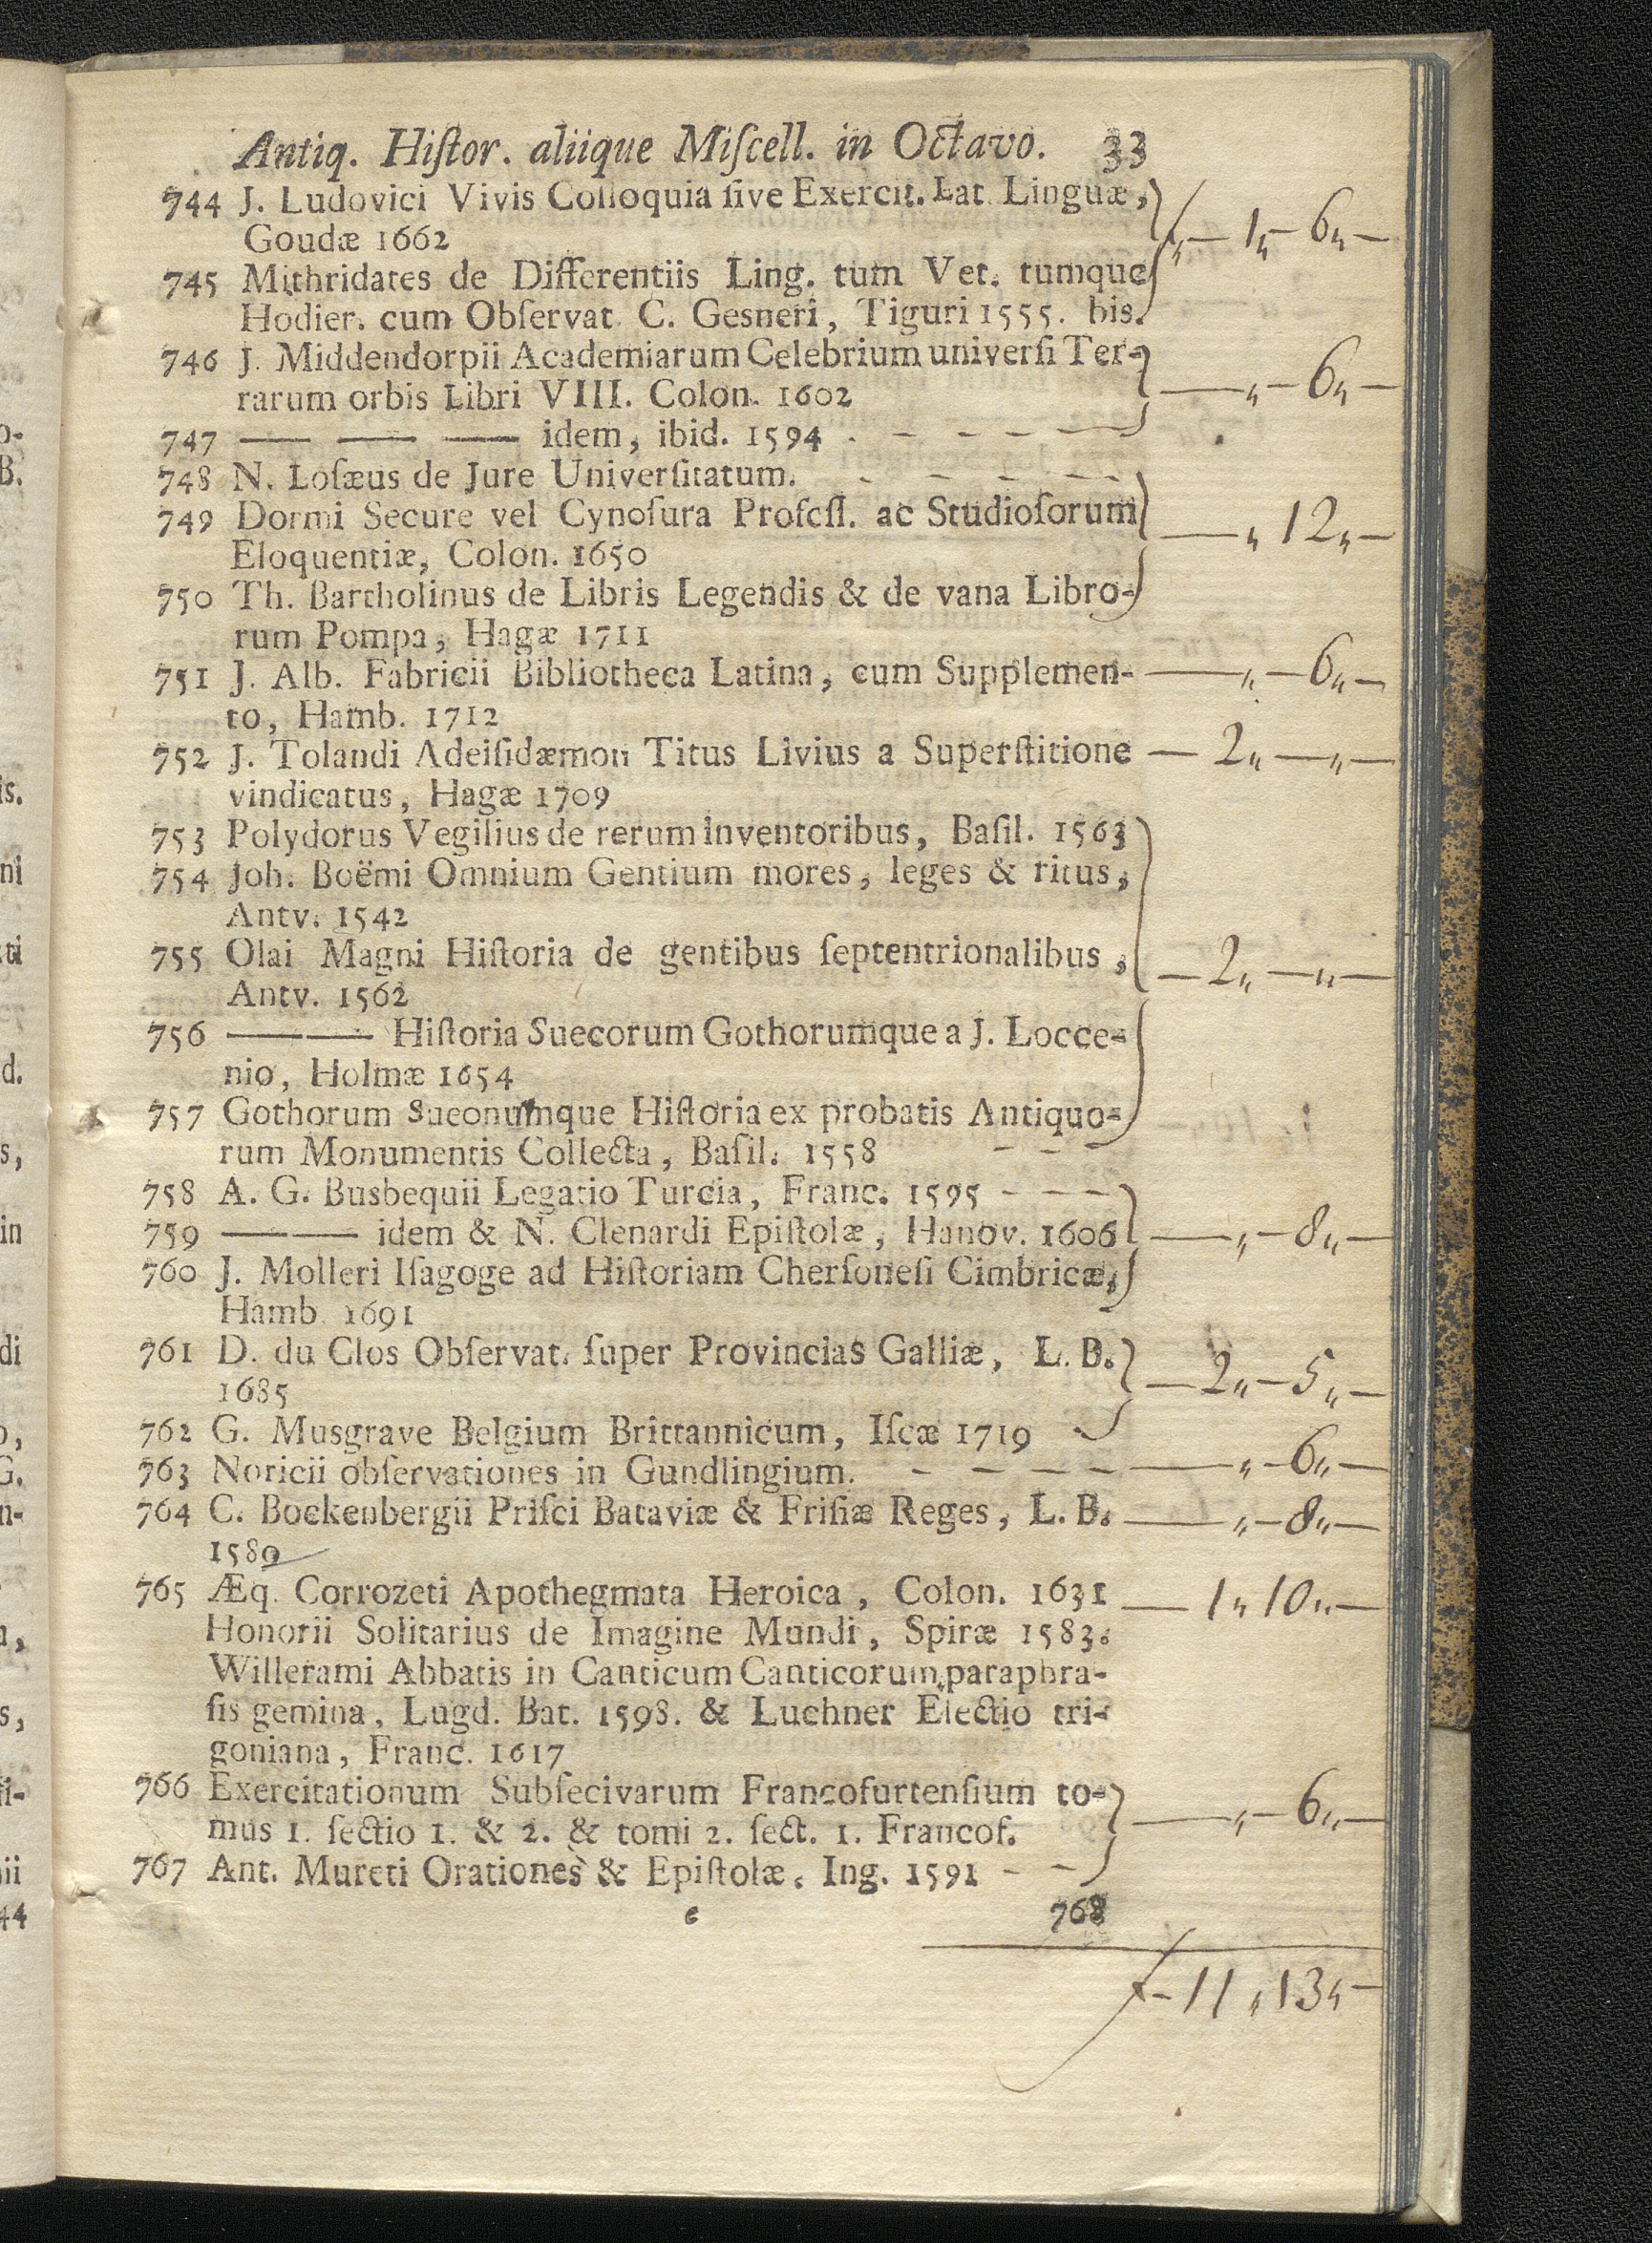 Antiq. Hiſtor. aliique Miſcell. in Octavo. 33
744 J. Ludovici Vivis Colloquia ſive Exercit. Lat. Linguæ,
Goudæ 1662 „— 1„— 6„—
745 Mithridates de Differentiis Ling. tum Vet. tumque
Hodier. cum Obſervat. C. Gesneri, Tiguri 1555. bis.
746 J. Middendorpii Academiarum Celebrium univerſi Ter-
rarum orbis Libri VIII. Colon. 1602 —„— 6„—
747 — — — idem, ibid. 1594 - - - - -
748 N. Loſæus de Jure Univerſitatum. - - - - -
749 Dormi Secure vel Cynoſura Profeſſ. ac Studioſorum —„ 12„—
Eloquentiæ, Colon. 1650
750 Th. Bartholinus de Libris Legendis & de vana Libro-
rum Pompa, Hagæ 1711
751 J. Alb. Fabricii Bibliotheca Latina, cum Supplemen- —„— 6„—
to, Hamb. 1712
752 J. Tolandi Adeiſidæmon Titus Livius a Superſtitione — 2„—„—
vindicatus, Hagæ 1709
753 Polydorus Vegilius de rerum inventoribus, Baſil. 1563
754 Joh. Boëmi Omnium Gentium mores, leges & ritus,
Antv. 1542
755 Olai Magni Hiſtoria de gentibus ſeptentrionalibus, — 2„—„—
Antv. 1562
756 — — Hiſtoria Suecorum Gothorumque a J. Locce-
nio, Holmæ 1654
757 Gothorum Sueonumque Hiſtoria ex probatis Antiquo-
rum Monumentis Collecta, Baſil. 1558 - - -
758 A. G. Busbequii Legatio Turcia, Franc. 1595 - - -
759 — — idem & N. Clenardi Epiſtolæ, Hanov. 1606 —„— 8„—
760 J. Molleri Iſagoge ad Hiſtoriam Cherſoneſi Cimbricæ,
Hamb. 1691
761 D. du Clos Obſervat. ſuper Provincias Galliæ, L. B.
1685 — 2„— 5„—
762 G. Musgrave Belgium Brittannicum, Iſcæ 1719 -
763 Noricii obſervationes in Gundlingium. - - - - —„— 6„—
764 C. Bockenbergii Priſci Bataviæ & Friſiæ Reges, L. B. —„— 8„—
1589
765 Æq. Corrozeti Apothegmata Heroica, Colon. 1631 — 1„ 10„—
Honorii Solitarius de Imagine Mundi, Spiræ 1583.
Willerami Abbatis in Canticum Canticorum paraphra-
ſis gemina, Lugd. Bat. 1598. & Luchner Electio tri-
goniana, Franc. 1617
766 Exercitationum Subſecivarum Francofurtenſium to-
mus 1. ſectio 1. & 2. & tomi 2. ſect. 1. Francof. —„— 6„—
767 Ant. Mureti Orationes & Epiſtolæ, Ing. 1591 - -
e 768
ƒ— 11„ 13„—